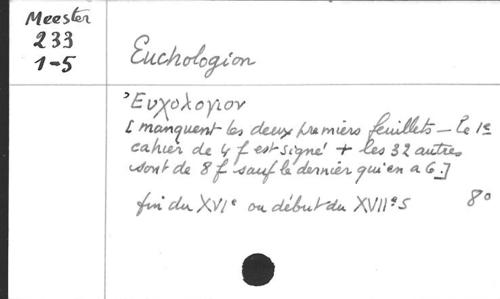 Meester
233
1-5
Euchologion
Ἐυχολογιον
[manquent les deux premiers feuillets - le 1e
cahier de 4 f est signé + les 32 autres
sont de 8 f sauf le dernier qui en a 6.]
fin du XVIe ou début du XVIIe s 8o